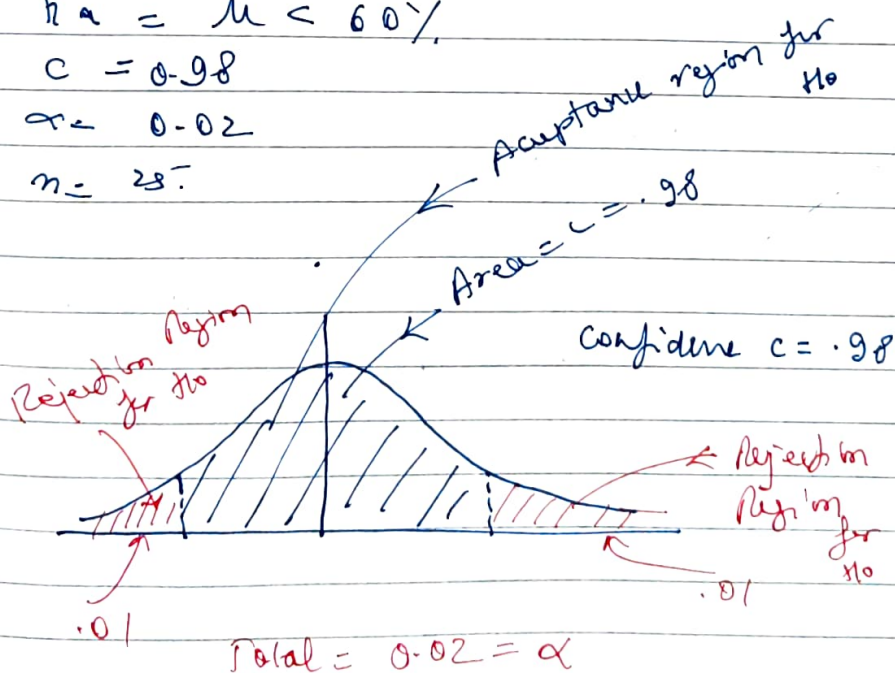 Ha = M < 60%
C = 0.98
α = 0.02
n = 25.
Acuptance region for
Ho
Area = C = .98
Confidence C = .98
Rejection Region
for Ho
Rejection
Region
for
Ho
.01
.01
Total = 0.02 = α